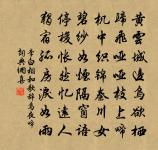 黃雲城邊烏欲棲
歸飛啞啞枝上啼
機中織錦秦川女
碧紗如煙隔窗語
停梭悵然憶遠人
獨宿孤房淚如雨
李白相和歌辞烏夜啼
詞典網